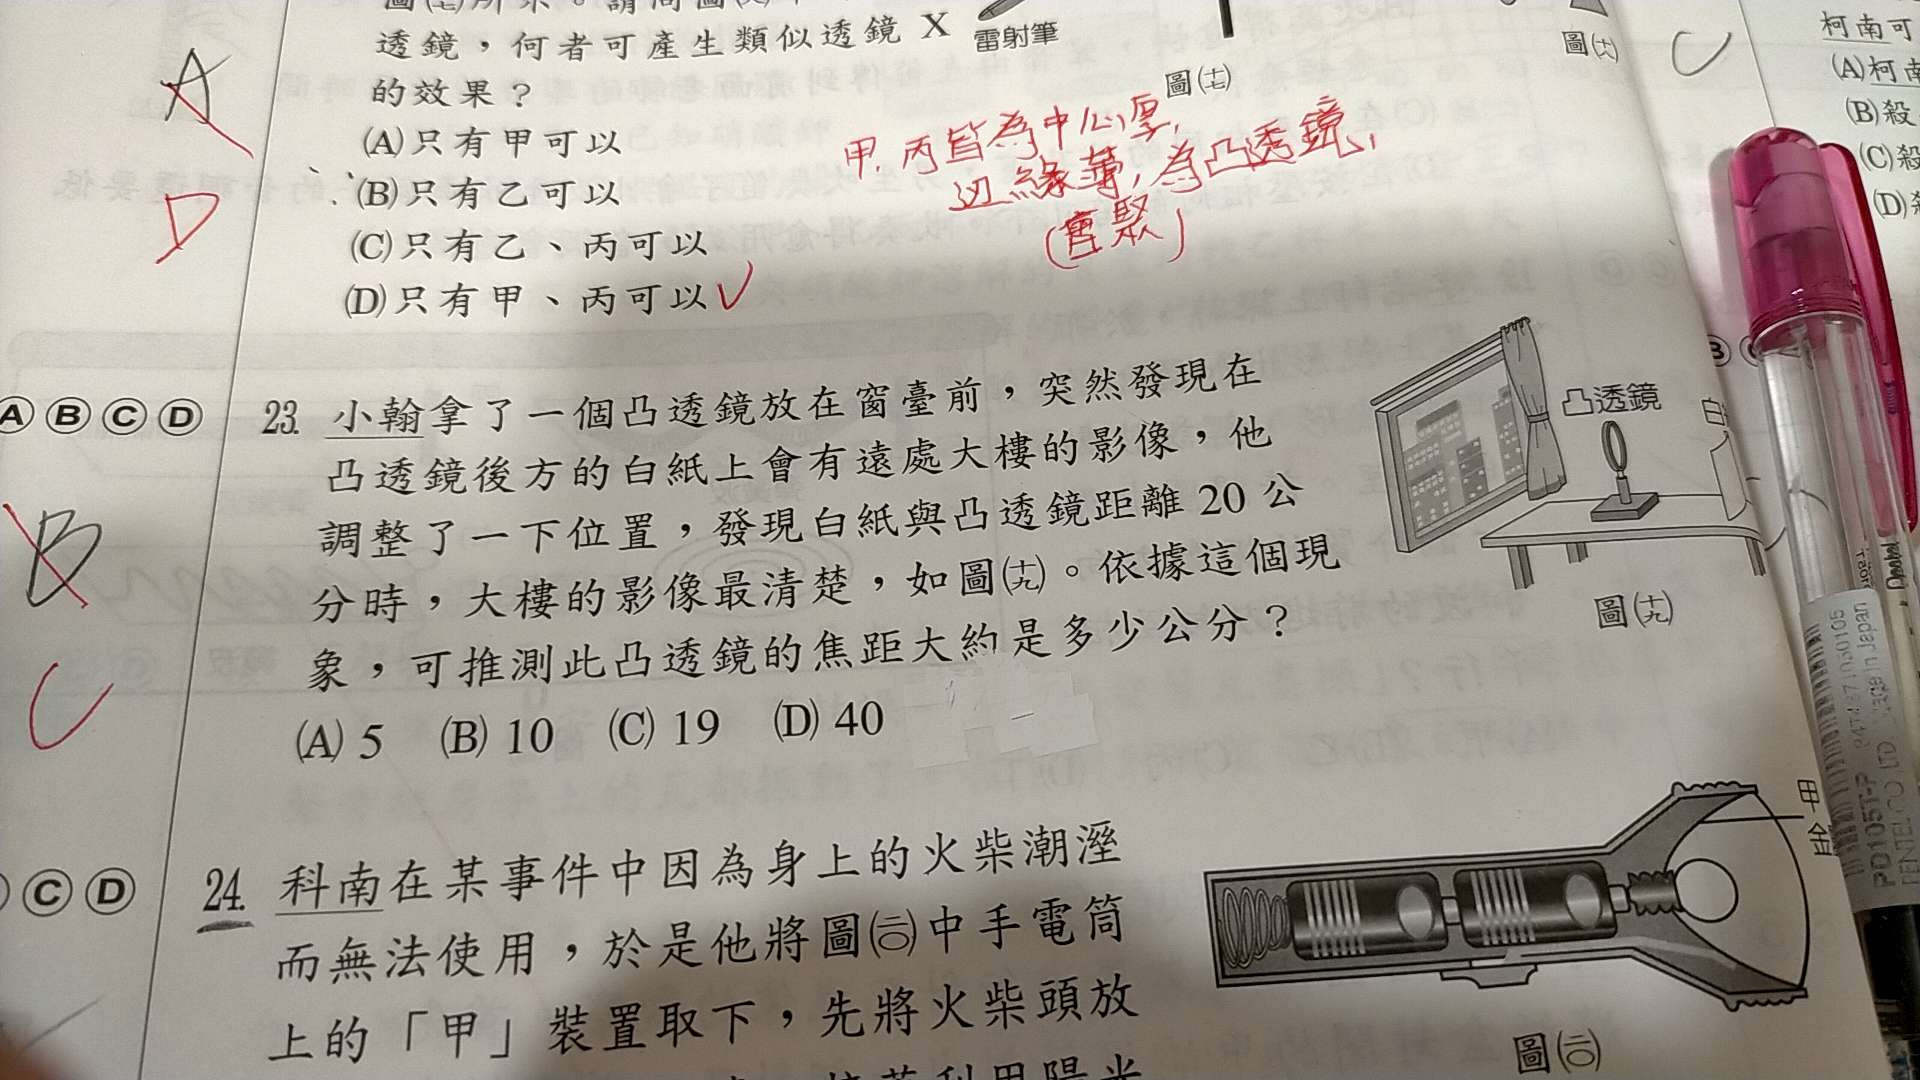 透鏡，何者可產生類似透鏡 X
的效果？
(A)只有甲可以
(B)只有乙可以
(C)只有乙、丙可以
(D)只有甲、丙可以
雷射筆
圖(十七)
圖(十八)
A
D
甲.丙皆為中心厚,
边緣薄,為凸透鏡,
(會聚)
C
柯南可
(A)柯南
(B)殺
(C)殺
(D)
A B C D
23. 小翰拿了一個凸透鏡放在窗臺前，突然發現在
凸透鏡後方的白紙上會有遠處大樓的影像，他
調整了一下位置，發現白紙與凸透鏡距離 20 公
分時，大樓的影像最清楚，如圖(十九)。依據這個現
象，可推測此凸透鏡的焦距大約是多少公分？
(A) 5 (B) 10 (C) 19 (D) 40
B
C
凸透鏡
圖(十九)
C D
24. 科南在某事件中因為身上的火柴潮溼
而無法使用，於是他將圖(二十)中手電筒
上的「甲」裝置取下，先將火柴頭放
甲
金
圖(二十)
PD105T-P
PENTEL CO LTD